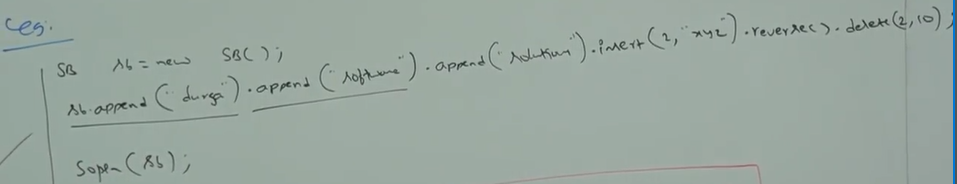 eg:
SB sb = new SB();
sb.append("durga").append("software").append("solution").insert(2,"xyz").reverse().delete(2,10);
Sopln(sb);